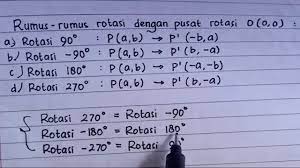 Rumus-rumus rotasi dengan pusat rotasi O(0,0) :
a) Rotasi 90° : P(a,b) → P'(-b,a)
b) Rotasi -90° : P(a,b) → P'(b,-a)
c) Rotasi 180° : P(a,b) → P'(-a,-b)
d) Rotasi 270° : P(a,b) → P'(b,-a)
Rotasi 270° = Rotasi -90°
Rotasi -180° = Rotasi 180°
Rotasi -270° = Rotasi